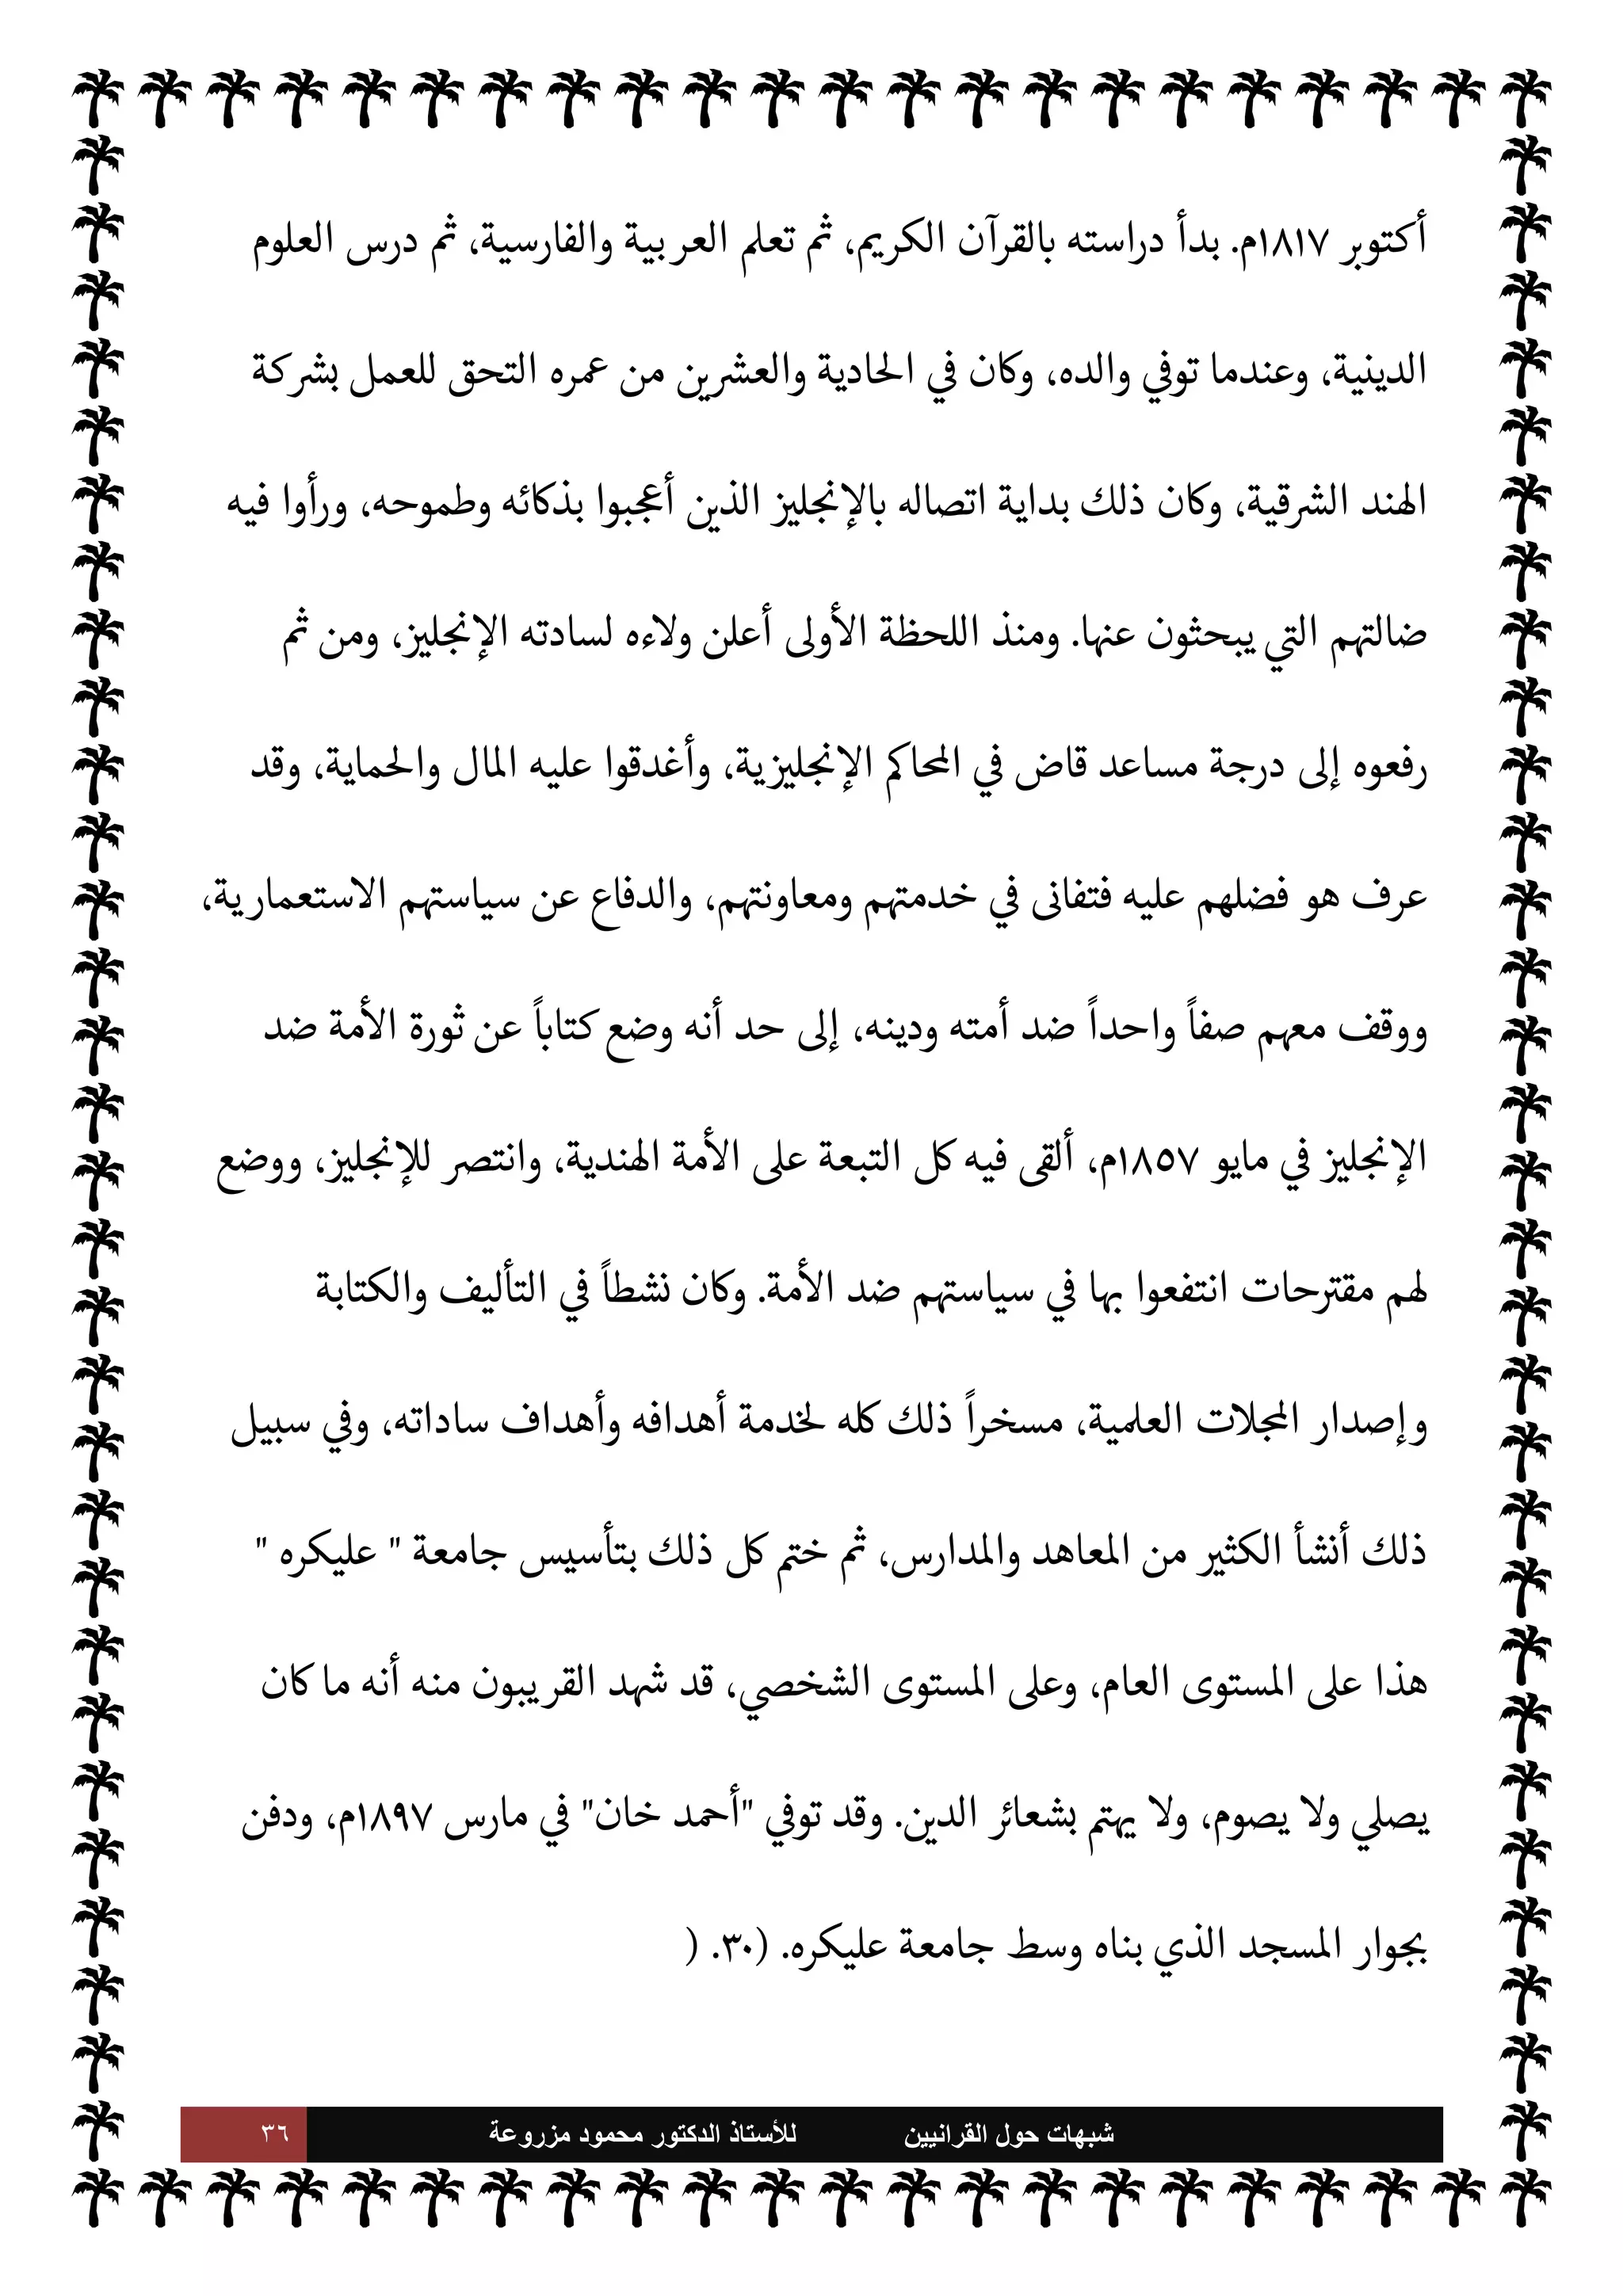 أكتوبر ١٨١٧م. بدأ دراسته بالقرآن الكريم، ثم تعلم العربية والفارسية، ثم درس العلوم
الدينية، وعندما توفي والده، وكان في الحادية والعشرين من عمره التحق للعمل بشركة
الهند الشرقية، وكان ذلك بداية اتصاله بالإنجليز الذين أعجبوا بذكائه وطموحه، ورأوا فيه
ضالتهم التي يبحثون عنها. ومنذ اللحظة الأولى أعلن ولاءه لسادته الإنجليز، ومن ثم
رفعوه إلى درجة مساعد قاض في المحاكم الإنجليزية، وأغدقوا عليه المال والحماية، وقد
عرف هو فضلهم عليه فتفانى في خدمتهم ومعاونتهم، والدفاع عن سياستهم الاستعمارية،
ووقف معهم صفاً واحداً ضد أمته ودينه، إلى حد أنه وضع كتاباً عن ثورة الأمة ضد
الإنجليز في مايو ١٨٥٧م، ألقى فيه كل التبعة على الأمة الهندية، وانتصر للإنجليز، ووضع
لهم مقترحات انتفعوا بها في سياستهم ضد الأمة. وكان نشطاً في التأليف والكتابة
وإصدار المجلات العلمية، مسخراً ذلك كله لخدمة أهدافه وأهداف ساداته، وفي سبيل
ذلك أنشأ الكثير من المعاهد والمدارس، ثم ختم كل ذلك بتأسيس جامعة " عليكره "
هذا على المستوى العام، وعلى المستوى الشخصي، قد شهد القريبون منه أنه ما كان
يصلي ولا يصوم، ولا يهتم بشعائر الدين. وقد توفي "أحمد خان" في مارس ١٨٩٧م، ودفن
بجوار المسجد الذي بناه وسط جامعة عليكره. (٣٠. (
شبهات حول القرانيين للأستاذ الدكتور محمود مزروعة ٣٦